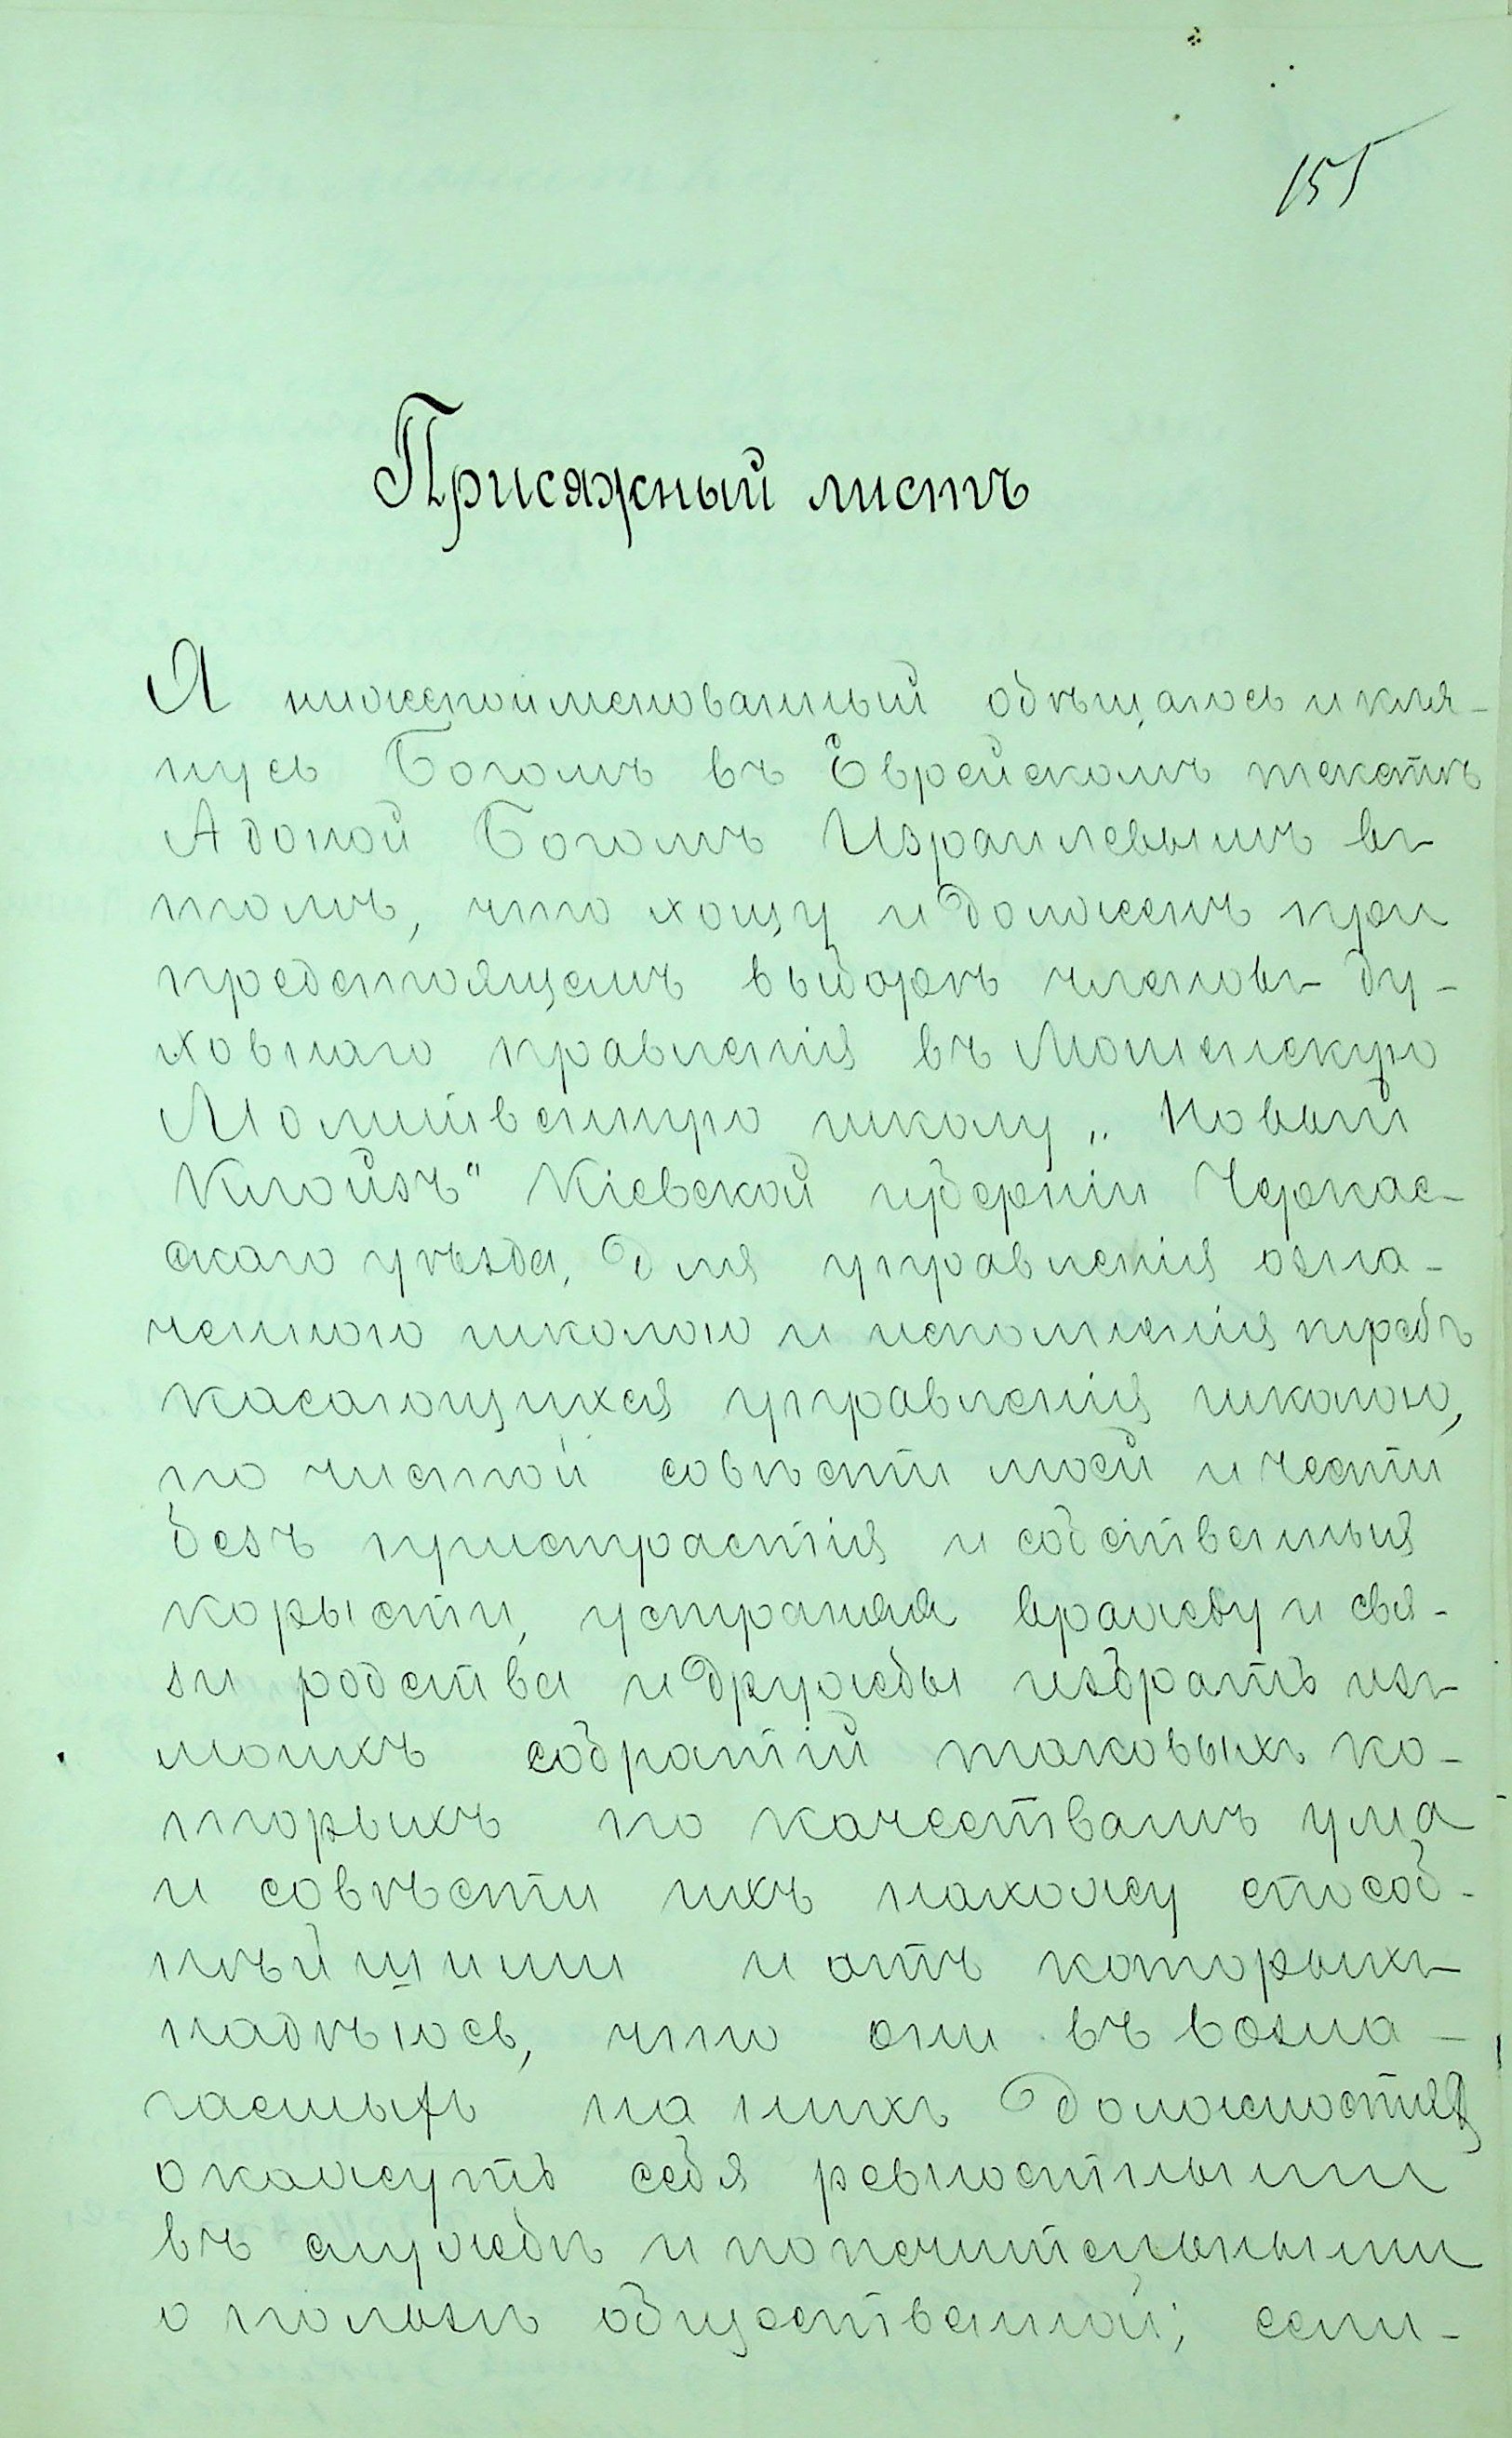 155
Присяжный листъ
Я нижепоименованный обѣщаюсь и кля-
нусь Богомъ въ Еврейскомъ текстѣ
Адоной Богомъ Израилевымъ въ
томъ, что хощу и долженъ при
предстоящемъ выборѣ членовъ ду-
ховнаго правленія въ Мошенскую
Молитвенную школу „Новый
Клойзъ" Кіевской губерніи Черкас-
скаго уѣзда, для управленія озна-
ченною школою и исполненія требъ
касающихся управленія школою,
по чистой совѣсти моей и чести
безъ пристрастія и собственныя
корысти, устраняя вражду и свя-
зи родства и дружбы избрать изъ
моихъ собратій таковыхъ ко-
торыхъ по качествамъ ума
и совѣсти ихъ нахожу способ-
нѣйшими и отъ которыхъ
надѣюсь, что они въ возла-
гаемыхъ на нихъ должностяхъ
окажутъ себя ревностными
въ службѣ и попечительными
о пользѣ общественной; если-